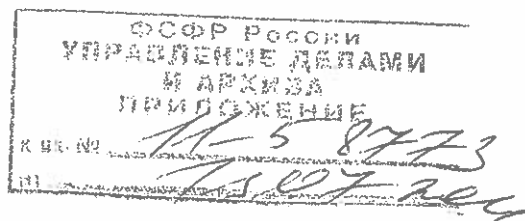 ФСФР России
УПРАВЛЕНИЕ ДЕЛАМИ
И АРХИВА
ПРИЛОЖЕНИЕ
к вх. № 11-5 8773